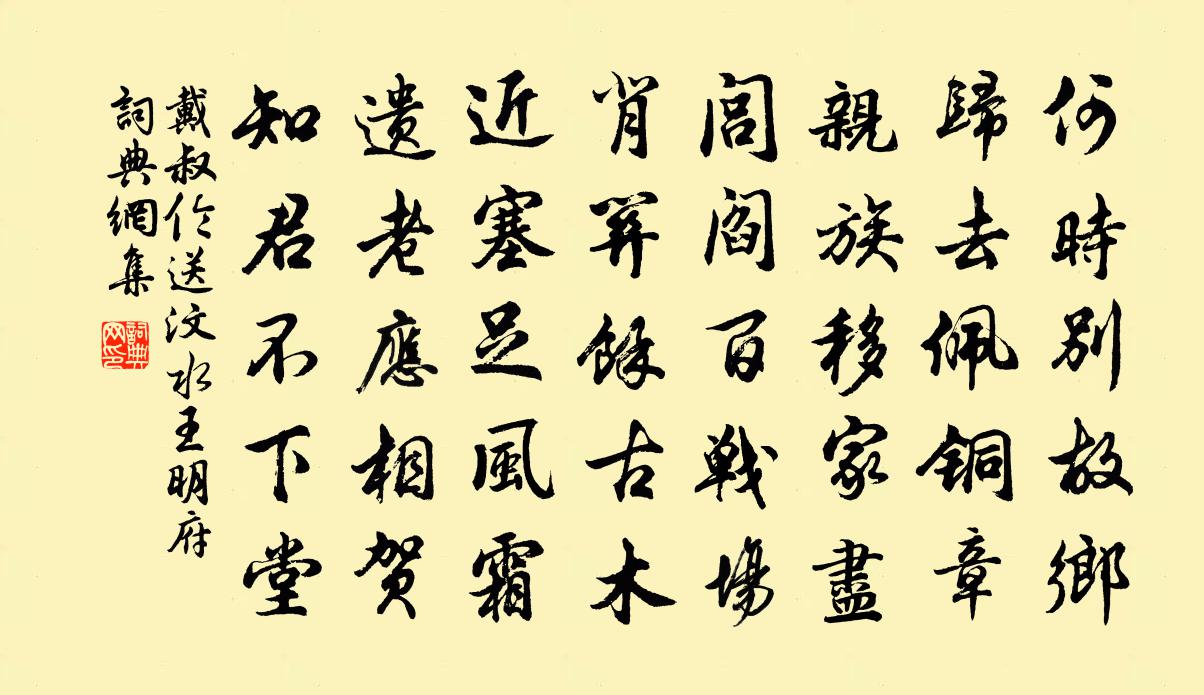 何時別故鄉
歸去佩銅章
親族移家盡
閭閻百戰場
背關餘古木
近塞足風霜
遺老應相賀
知君不下堂
戴叔倫送汶水王明府
詞典網集
詞典网印